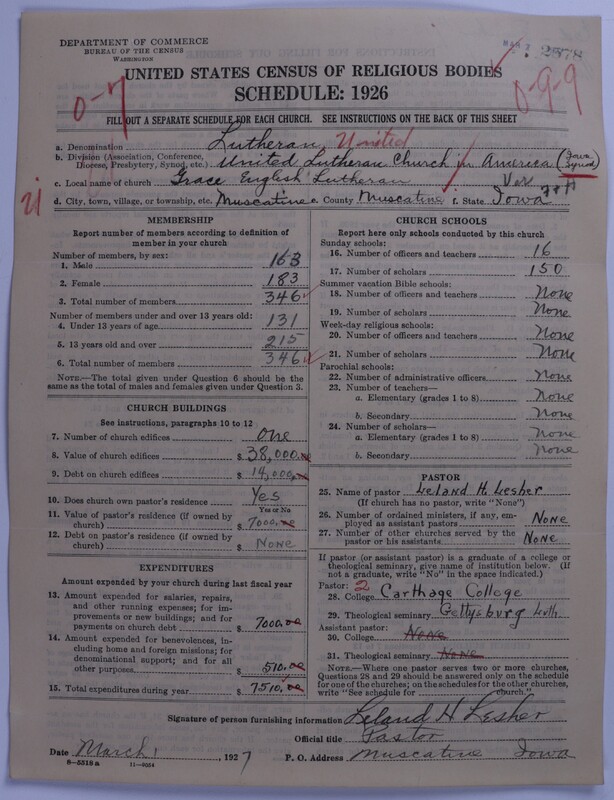 DEPARTMENT OF COMMERCE
BUREAU OF THE CENSUS
WASHINGTON
MAR 2
UNITED STATES CENSUS OF RELIGIOUS BODIES
SCHEDULE: 1926
0-7
0-9-9
FILL OUT A SEPARATE SCHEDULE FOR EACH CHURCH. SEE INSTRUCTIONS ON THE BACK OF THIS SHEET
a. Denomination Lutheran United
b. Division (Association, Conference, Diocese, Presbytery, Synod, etc.) United Lutheran Church in America (Iowa Synod)
c. Local name of church Grace English Lutheran Ver
d. City, town, village, or township, etc. Muscatine e. County Muscatine f. State Iowa
MEMBERSHIP
Report number of members according to definition of
member in your church
Number of members, by sex:
1. Male 163
2. Female 183
3. Total number of members 346
Number of members under and over 13 years old:
4. Under 13 years of age 131
5. 13 years old and over 215
6. Total number of members 346
NOTE.—The total given under Question 6 should be
the same as the total of males and females given under Question 3.
CHURCH BUILDINGS
See instructions, paragraphs 10 to 12
7. Number of church edifices one
8. Value of church edifices $ 38,000.00
9. Debt on church edifices $ 14,000.00
10. Does church own pastor's residence Yes
Yes or No
11. Value of pastor's residence (if owned by
church) $ 7000.00
12. Debt on pastor's residence (if owned by
church) $ None
EXPENDITURES
Amount expended by your church during last fiscal year
13. Amount expended for salaries, repairs,
and other running expenses; for im-
provements or new buildings; and for
payments on church debt $ 7000.00
14. Amount expended for benevolences, in-
cluding home and foreign missions; for
denominational support; and for all
other purposes $ 510.00
15. Total expenditures during year $ 7510.00
CHURCH SCHOOLS
Report here only schools conducted by this church
Sunday schools:
16. Number of officers and teachers 16
17. Number of scholars 150
Summer vacation Bible schools:
18. Number of officers and teachers None
19. Number of scholars None
Week-day religious schools:
20. Number of officers and teachers None
21. Number of scholars None
Parochial schools:
22. Number of administrative officers None
23. Number of teachers—
a. Elementary (grades 1 to 8) None
b. Secondary None
24. Number of scholars—
a. Elementary (grades 1 to 8) None
b. Secondary None
PASTOR
25. Name of pastor Leland H. Lesher
(If church has no pastor, write "None")
26. Number of ordained ministers, if any, em-
ployed as assistant pastors None
27. Number of other churches served by the
pastor or his assistants None
If pastor (or assistant pastor) is a graduate of a college or
theological seminary, give name of institution below. (If
not a graduate, write "No" in the space indicated.)
Pastor: 2
28. College Carthage College
29. Theological seminary Gettysburg Luth.
Assistant pastor:
30. College None
31. Theological seminary None
NOTE.—Where one pastor serves two or more churches,
Questions 28 and 29 should be answered only on the schedule
for one of the churches; on the schedules for the other churches,
write "See schedule for church."
Signature of person furnishing information Leland H Lesher
Official title Pastor
Date March 1, 1927 P. O. Address Muscatine Iowa
8-5318a 11-9054